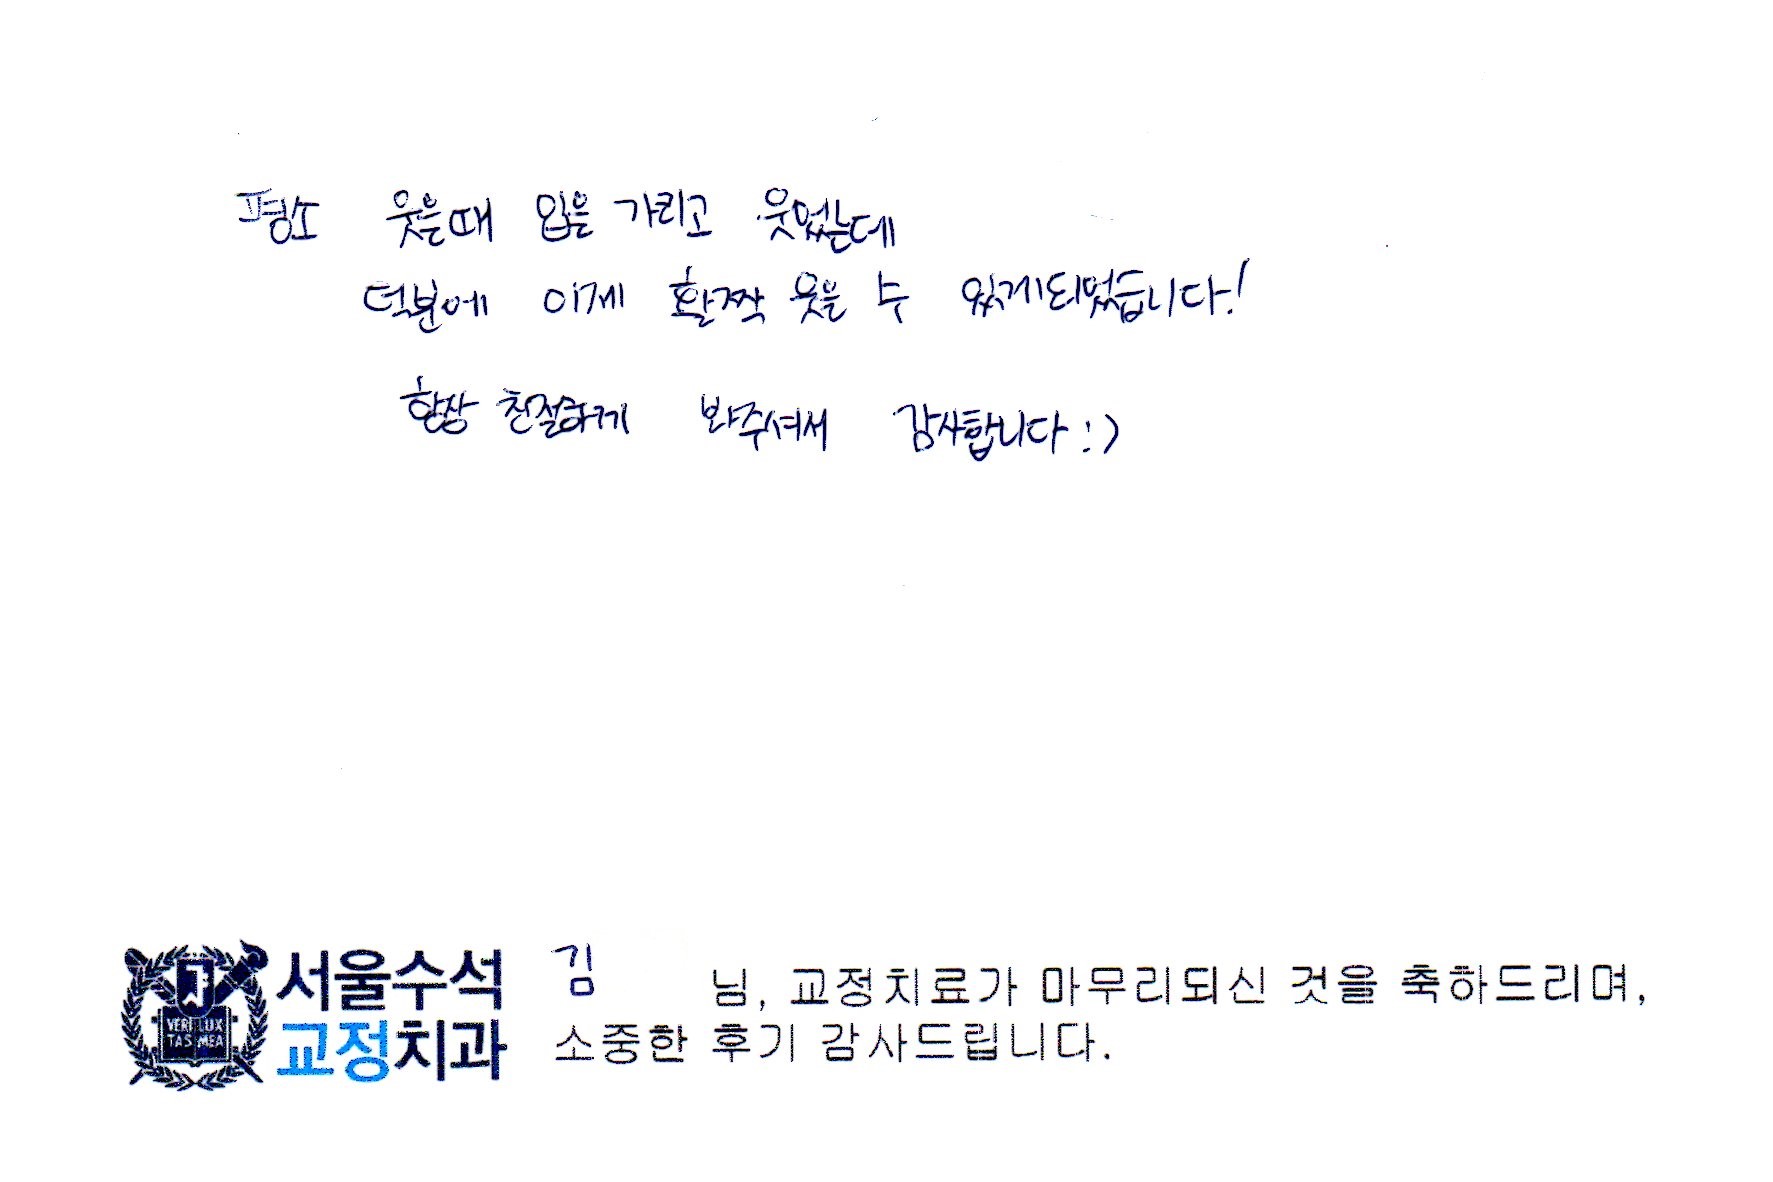 평소 웃을때 입을 가리고 웃었는데
덕분에 이제 활짝 웃을 수 있게되었습니다!
항상 친절하게 봐주셔서 감사합니다 :)
서울수석
교정치과
VERI LUX
TAS MEA
김 님, 교정치료가 마무리되신 것을 축하드리며,
소중한 후기 감사드립니다.